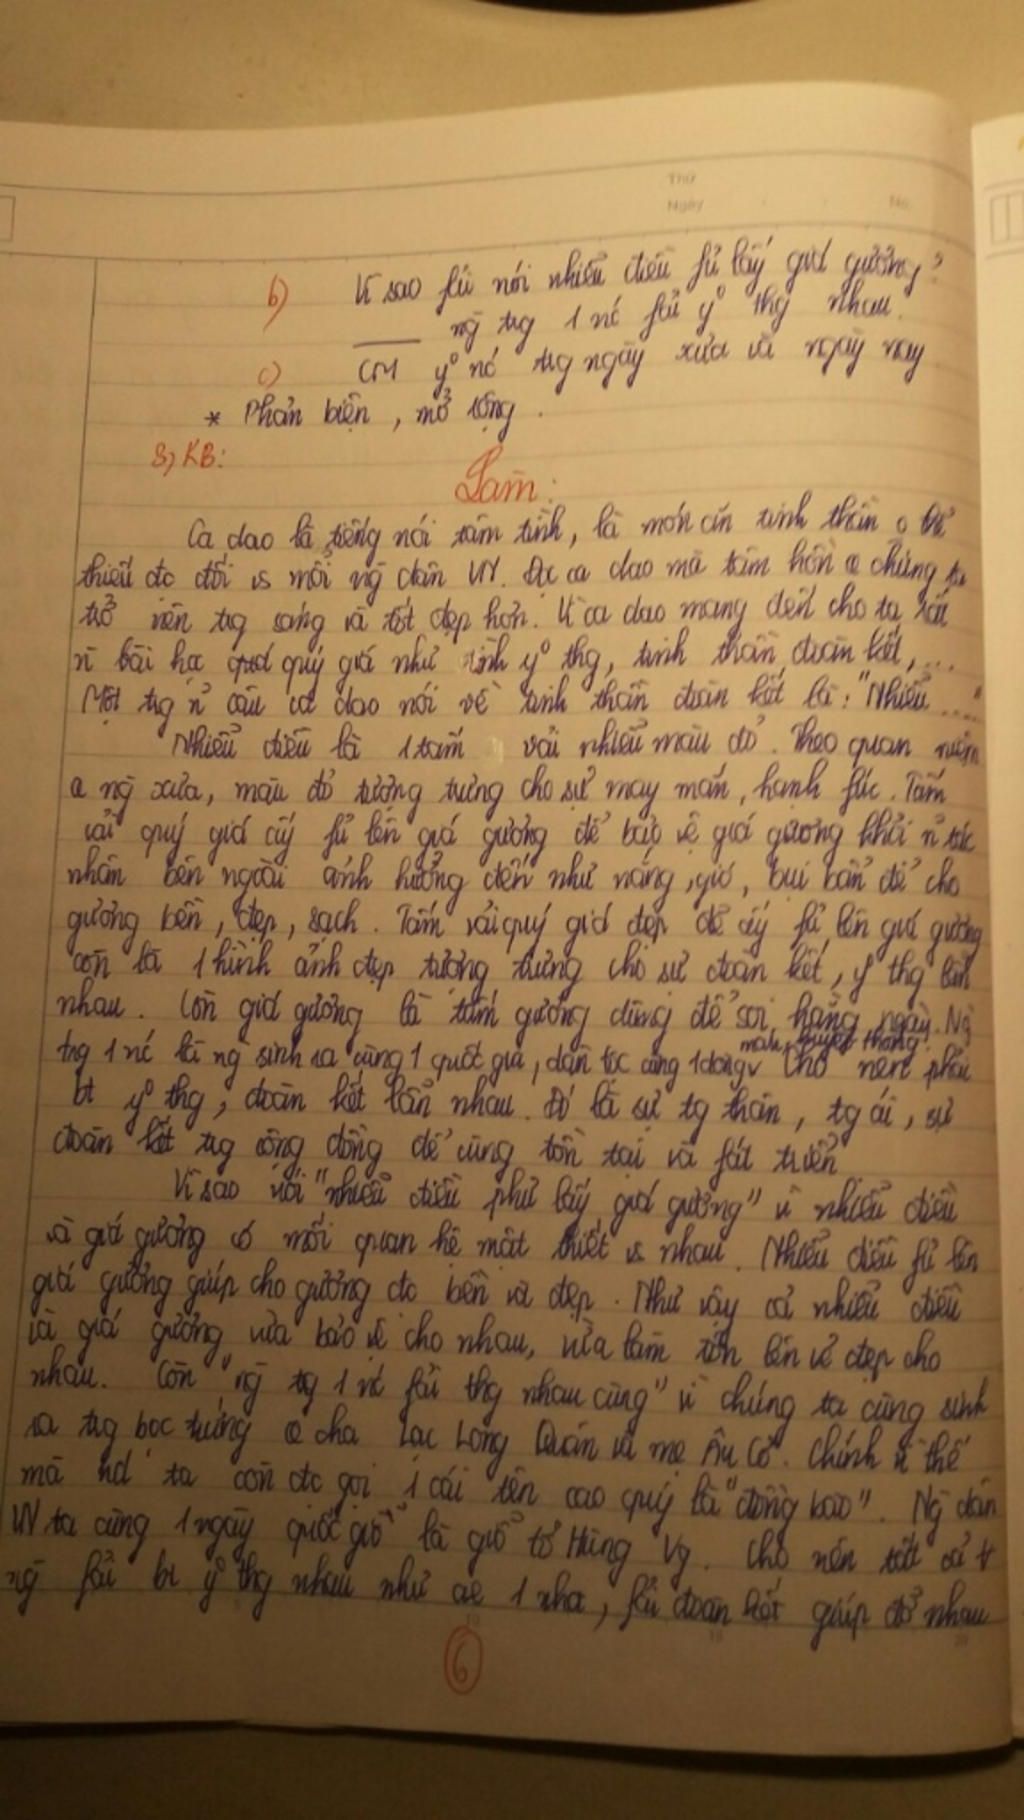 Thứ
Ngày No.
b) Vì sao fủ nói nhiễu điều fủ lấy giá gương?
ng trg 1 nc fải yº thg nhau.
c) CM yº nc trg ngày xưa và ngày nay
* Phản biện, mở rộng.
3, KB:
Làm:
Ca dao là tiếng nói tâm tình, là món ăn tinh thần o thể
thiếu đc đối vs mỗi ng dân VN. Đọc ca dao mà tâm hồn chúng ta
trở nên trg sáng và tốt đẹp hơn. Vì ca dao mang đến cho ta rất
n bài học quý giá như tình yº thg, tinh thần đoàn kết,...
Một trg n câu ca dao nói về tinh thần đoàn kết là: "Nhiễu ....."
Nhiễu điều là 1 tấm vải nhiễu màu đỏ. Theo quan niệm
ng xưa, màu đỏ tượng trưng cho sự may mắn, hạnh fúc. Tấm
vải quý giá ấy fủ lên giá gương để bảo vệ giá gương khỏi n tác
nhân bên ngoài ảnh hưởng đến như nắng, gió, bụi bẩn để cho
gương bền, đẹp, sạch. Tấm vải quý giá đẹp đẽ ấy fủ lên giá gương
còn là 1 hình ảnh đẹp tượng trưng cho sự đoàn kết, yº thg lẫn
nhau. Còn giá gương là tấm gương dùng để soi hằng ngày. Ng
trg 1 nc là ng sinh ra cùng 1 quốc gia, dân tộc cùng 1 dòng máu, truyền thống. Cho nên phải
bt yº thg, đoàn kết lẫn nhau. Đó là sự tg thân, tg ái, sự
đoàn kết trg cộng đồng để cùng tồn tại và fát triển
Vì sao nói "nhiễu điều phủ lấy giá gương" vì nhiễu điều
và giá gương có mối quan hệ mật thiết vs nhau. Nhiễu điều fủ lên
giá gương giúp cho gương đc bền và đẹp. Như vậy cả nhiễu điều
và giá gương vừa bảo vệ cho nhau, vừa làm tôn lên vẻ đẹp cho
nhau. Còn "ng trg 1 nc fải thg nhau cùng" vì chúng ta cùng sinh
ra trg bọc trứng cha Lạc Long Quân và mẹ Âu Cơ. Chính vì thế
mà ta còn đc gọi 1 cái tên cao quý là "đồng bào". Ng dân
VN ta cùng 1 ngày quốc giỗ là giỗ tổ Hùng Vg. Cho nên tất cả
ng fải bt yº thg nhau như ae 1 nhà, fải đoàn kết giúp đỡ nhau
6